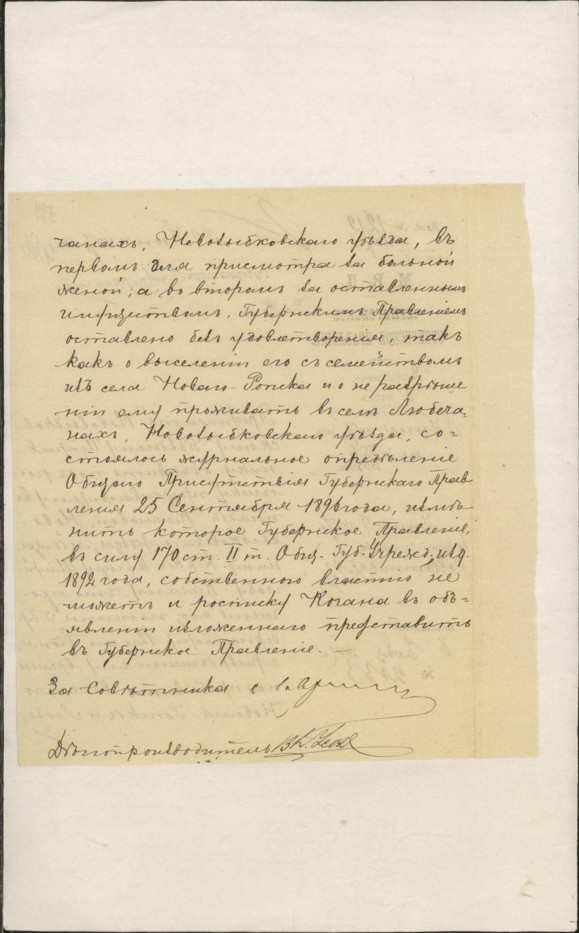 чанахъ, Новозыбковскаго уѣзда, въ
первомъ для присмотра за больной
женой; а во второмъ за оставленнымъ
имуществомъ, Губернскимъ Правленіемъ
оставлено безъ удовлетворенія, такъ
какъ о выселеніи его съ семействомъ
изъ села Новаго-Ропска и о не разрѣше
ніи ему проживать въ селѣ Любеча-
нахъ, Новозыбковскаго уѣзда, со-
стоялось журнальное опредѣленіе
Общаго Присутствія Губернскаго Прав
ленія 25 Сентября 1896 года, измѣ-
нить которое Губернское Правленіе,
въ силу 170 ст. II т. Общ. Губ. Учрежд., изд.
1892 года, собственною властію не
можетъ и росписку Когана въ объ-
явленіи изложеннаго представить
въ Губернское Правленіе. —
За Совѣтника
Дѣлопроизводитель